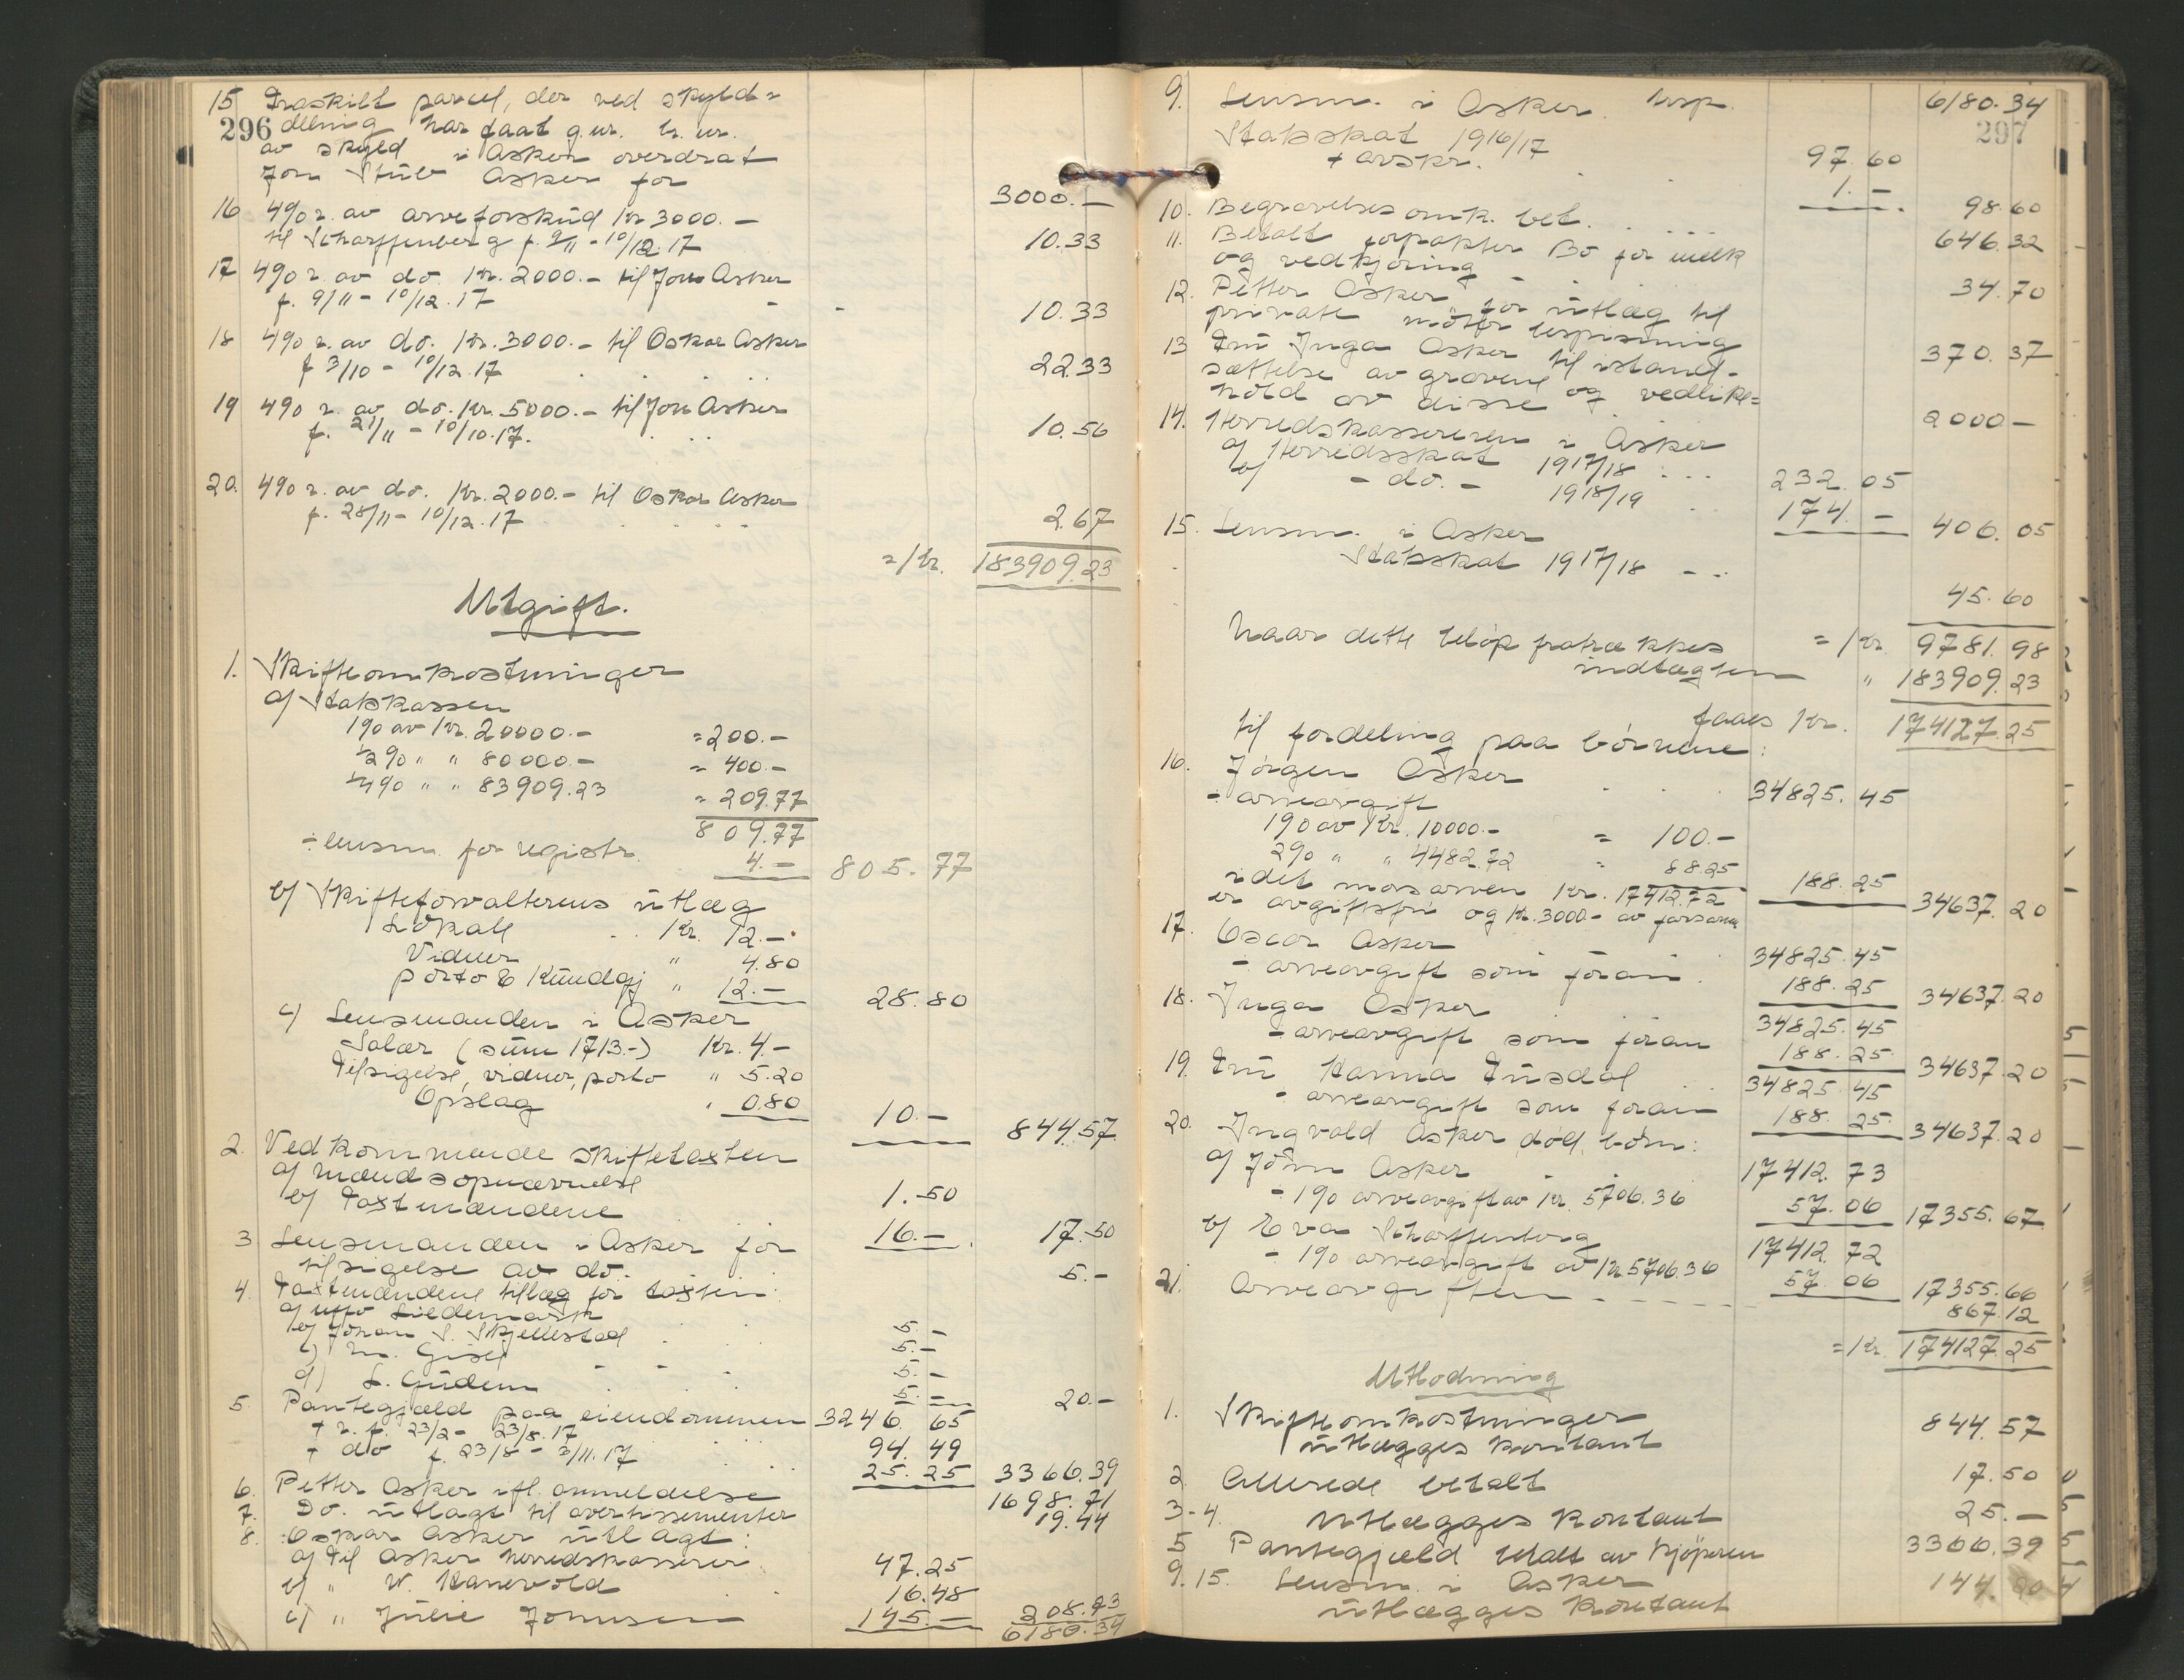 15 Fraskilt parcel, der ved skyld=
296
deling har faat g.nr. br. nr.
av skyld i Asker overdrat
Jon Stüb Asker for 3000.—
16 4% r. av arveforskud Kr. 3000.—
til Scharffenberg f. 9/11 - 10/12. 17 10.33
17 4% r. av do. Kr. 2000.— til Jon Asker
f. 9/11 - 10/12. 17 10.33
18 4% r. av do. Kr. 3000.— til Oskar Asker
f 3/10 - 10/12. 17 22.33
19 4% r. av do. Kr. 5000.— til Jon Asker
f. 21/11 - 10/10. 17. 10.56
20. 4% r. av do. Kr. 2000.— til Oskar Asker
f. 28/11 - 10/12. 17 2.67
= Kr. 183909.23
Utgift.
1. Skifteomkostninger
a/ Statskassen
1% av Kr. 20000.— = 200.—
1/2% " " 80000.— = 400.—
1/4% " " 83909.23 = 209.77
809.77
÷ lensm. for registr. 4.— 805.77
b/ Skifteforvalterens utlæg
Lokale Kr. 12.—
Vidner " 4.80
porto & Kundgj " 12.— 28.80
c/ Lensmanden i Asker
Salær (sum 1713.-) Kr. 4.—
Tilsigelse, vidner, porto " 5.20
Opslag " 0.80 10.— 844.57
2. Vedkommende skiftetaksten
a/ mændsopnævnelse 1.50
b/ Takstmændene 16.— 17.50
3 Lensmanden i Asker for
tilsigelse av do. 5.—
4. Takstmændene tillæg for taksten:
a/ Liedemark 5.—
b/ Johan S. Skjellestad 5.—
c) M. Gisle 5.—
d) L. Gudem 5.— 20.—
5. Pantegjæld paa eiendommen 3246.65
+ r. f. 23/2 - 23/8. 17 94.49
+ do f. 23/8 - 3/11. 17 25.25 3366.39
6. Petter Asker ifl. anmeldelse 1698.71
7. Do. utlagt til avertissementer 19.44
8. Oskar Asker utlagt:
a/ til Asker herredskasserer 47.25
b/ " W. Hanevold 16.48
c/ " Julie Johnsen 145.— 208.73
6180.34
9. Lensm. i Asker resp. 6180.34
297
Statsskat 1916/17 97.60
+ avskr. 1.— 98.60
10. Begravelsesomk. bet. 646.32
11. Betalt forpakter Bö for melk
og vedkjøring 34.70
12. Petter Asker for utlæg til
private møter bespisning 370.37
13 Frü Inga Asker til istand-
sættelse av gravene og vedlike=
hold av disse 2000—
14. Herredskassereren i Asker
a/ Herredsskat 1917/18 232.05
b/ - do. - 1918/19 174.— 406.05
15. Lensm. i Asker
Statsskat 1917/18 45.60
= Kr. 9781.98
Naar dette beløp fratrækkes
indtægten " 183909.23
faaes Kr. 174127.25
til fordeling paa børnene:
16. Jörgen Asker 34825.45
÷ arveavgift
1% av Kr. 10000.— = 100.—
2% " " 4482.72 = 88.25 188.25 34637.20
idet morsarven Kr. 17412.72
er avgiftsfri og Kr. 3000.— av farsarven
17. Oscar Asker 34825.45
÷ arveavgift som foran 188.25 34637.20
18. Inga Asker 34825.45
÷ arveavgift som foran 188.25 34637.20
19. Frü Hanna Fusdal 34825.45
÷ arveavgift som foran 188.25 34637.20
20. Ingvald Asker död, børn:
a/ John Asker 17412.73
÷ 1% arveavgift av Kr. 5706.36 57.06 17355.67
b/ Eva Scharffenberg 17412.72
÷ 1% arveavgift av Kr 5706.36 57.06 17355.66
21. Arveavgiften 867.12
= Kr. 174127.25
Utlodning
1. Skifteomkostninger
utlægges kontant 844.57
2. Allerede betalt 17.50
3-4. Utlægges kontant 25.—
5 Pantegjæld betalt av kjöperen 3366.39
9.15. Lensm. i Asker
utlægges kontant 144.20